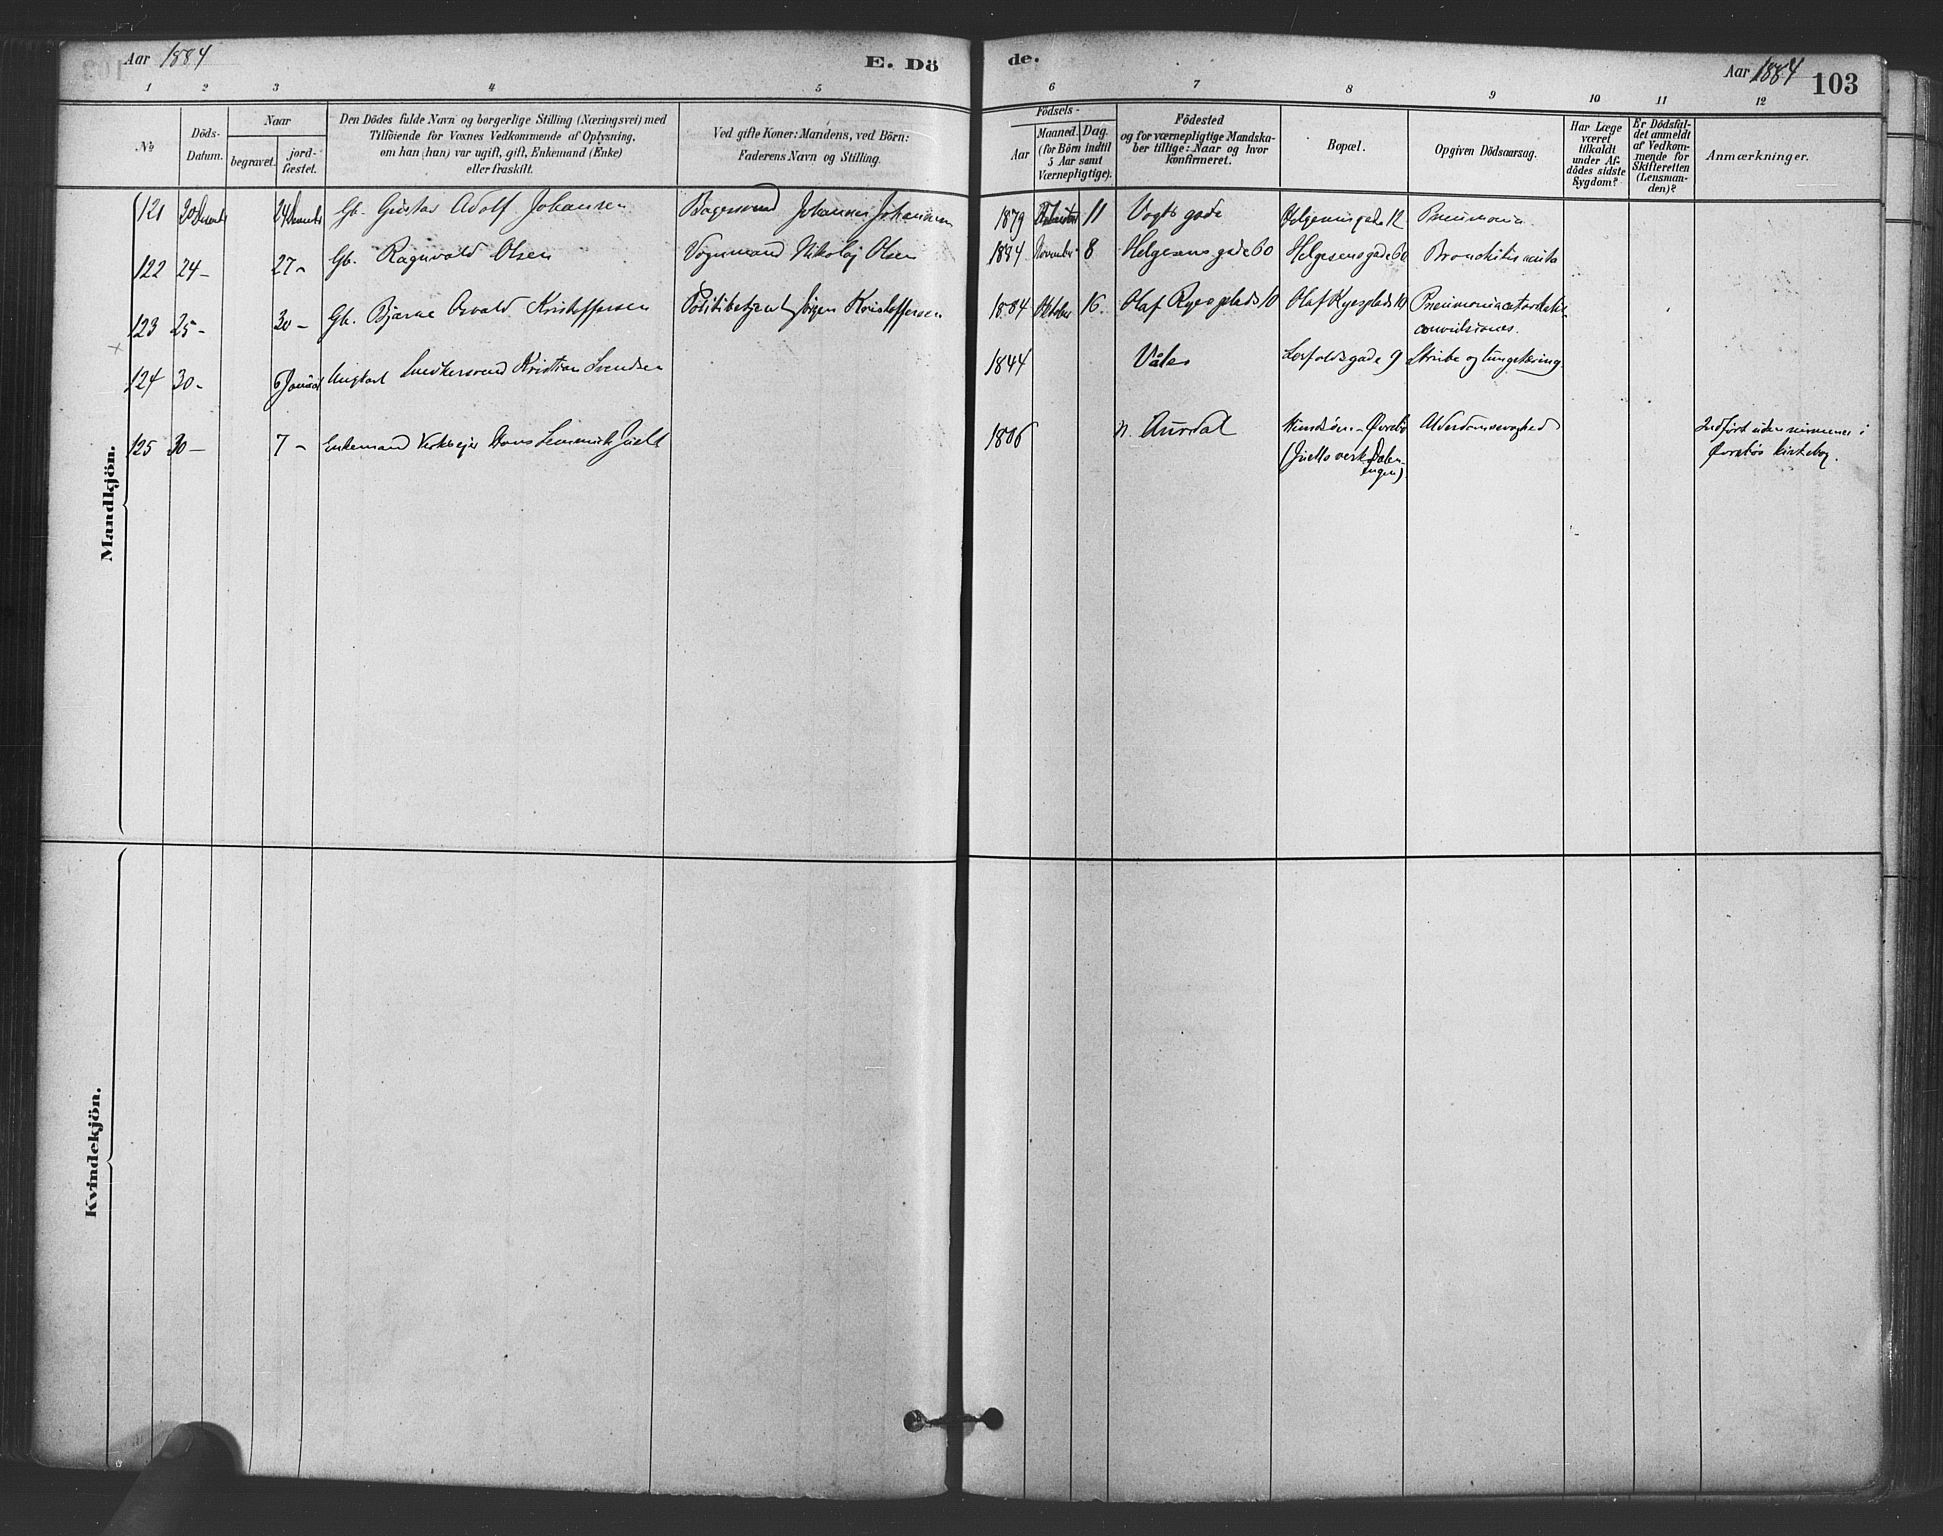 Aar 1884
E. Dö
de.
Aar 1884 103
1 2 3 4 5 6 7 8 9 10 11 12
No
Döds-
Datum.
Naar
begravet.
jord-
fæstet.
Den Dödes fulde Navn og borgerlige Stilling (Næringsvei) med
Tilföiende for Voxnes Vedkommende af Oplysning,
om han (hun) var ugift, gift, Enkemand (Enke)
eller fraskilt.
Ved gifte Koner: Mandens, ved Börn:
Faderens Navn og Stilling.
Födsels-
Aar
Maaned. Dag.
(for Börn indtil
5 Aar samt
Værnepligtige).
Födested
og for værnepligtige Mandska-
ber tillige: Naar og hvor
Konfirmeret.
Bopæl.
Opgiven Dödsaarsag.
Har Læge
været
tilkaldt
under Af-
dödes sidste
Sygdom?
Er Dödsfal-
det anmeldt
af Vedkom-
mende for
Skifteretten
(Lensman-
den)?
Anmærkninger.
Mandkjön.
121 20 24 Gb. Gustav Adolf Johansen Bagersvend Johannes Johansen 1879 11 Vogts gade Helgesensgade 12 Pneumonia
122 24 – 27 – Gb. Ragnvald Olsen Vognmand Nikolaj Olsen 1884 November 8 Helgesens gade 60 Helgesensgade 60 Bronchitis
123 25 – 30 – Gb. Bjarne Osvald Kristoffersen Politibetjent Jörgen Kristoffersen 1884 Oktober 16. Olaf Ryes plads 10 Olaf Ryesplads 10 Pneumonia
convulsiones.
124 30 – 6 Januar Ungkarl Snedkersvend Kristian Svendsen 1844 Våler gade 9 Strube og lungetæring
125 30 – 7 – Enkemand 1806 N. Aurdal Alderdomssvaghed Indført uden nummer i
Øvrebø kirkebog.
Kvindekjön.